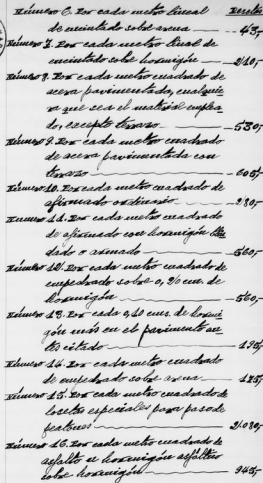 Número 6. Por cada metro lineal Pesetas
de encintado sobre arena 43,-
Número 7. Por cada metro lineal de
encintado sobre hormigón 210,-
Número 8. Por cada metro cuadrado de
acera pavimentada, cualquie
ra que sea el material emplea
do, excepto terrazo 530,-
Número 9. Por cada metro cuadrado
de acera pavimentada con
terrazo 605,-
Número 10. Por cada metro cuadrado de
afirmado ordinario 230,-
Número 11. Por cada metro cuadrado
de afirmado con hormigón
dado o armado 560,-
Número 12. Por cada metro cuadrado de
empedrado sobre 0,20 cms. de
hormigón 560,-
Número 13. Por cada 0,10 cms. de hormi
gón más en el pavimento an
tes citado 190,-
Número 14. Por cada metro cuadrado
de empedrado sobre arena 125,-
Número 15. Por cada metro cuadrado de
losetas especiales para paso de
peatones 2.080,-
Número 16. Por cada metro cuadrado de
asfalto u hormigón asfáltico
sobre hormigón 945,-